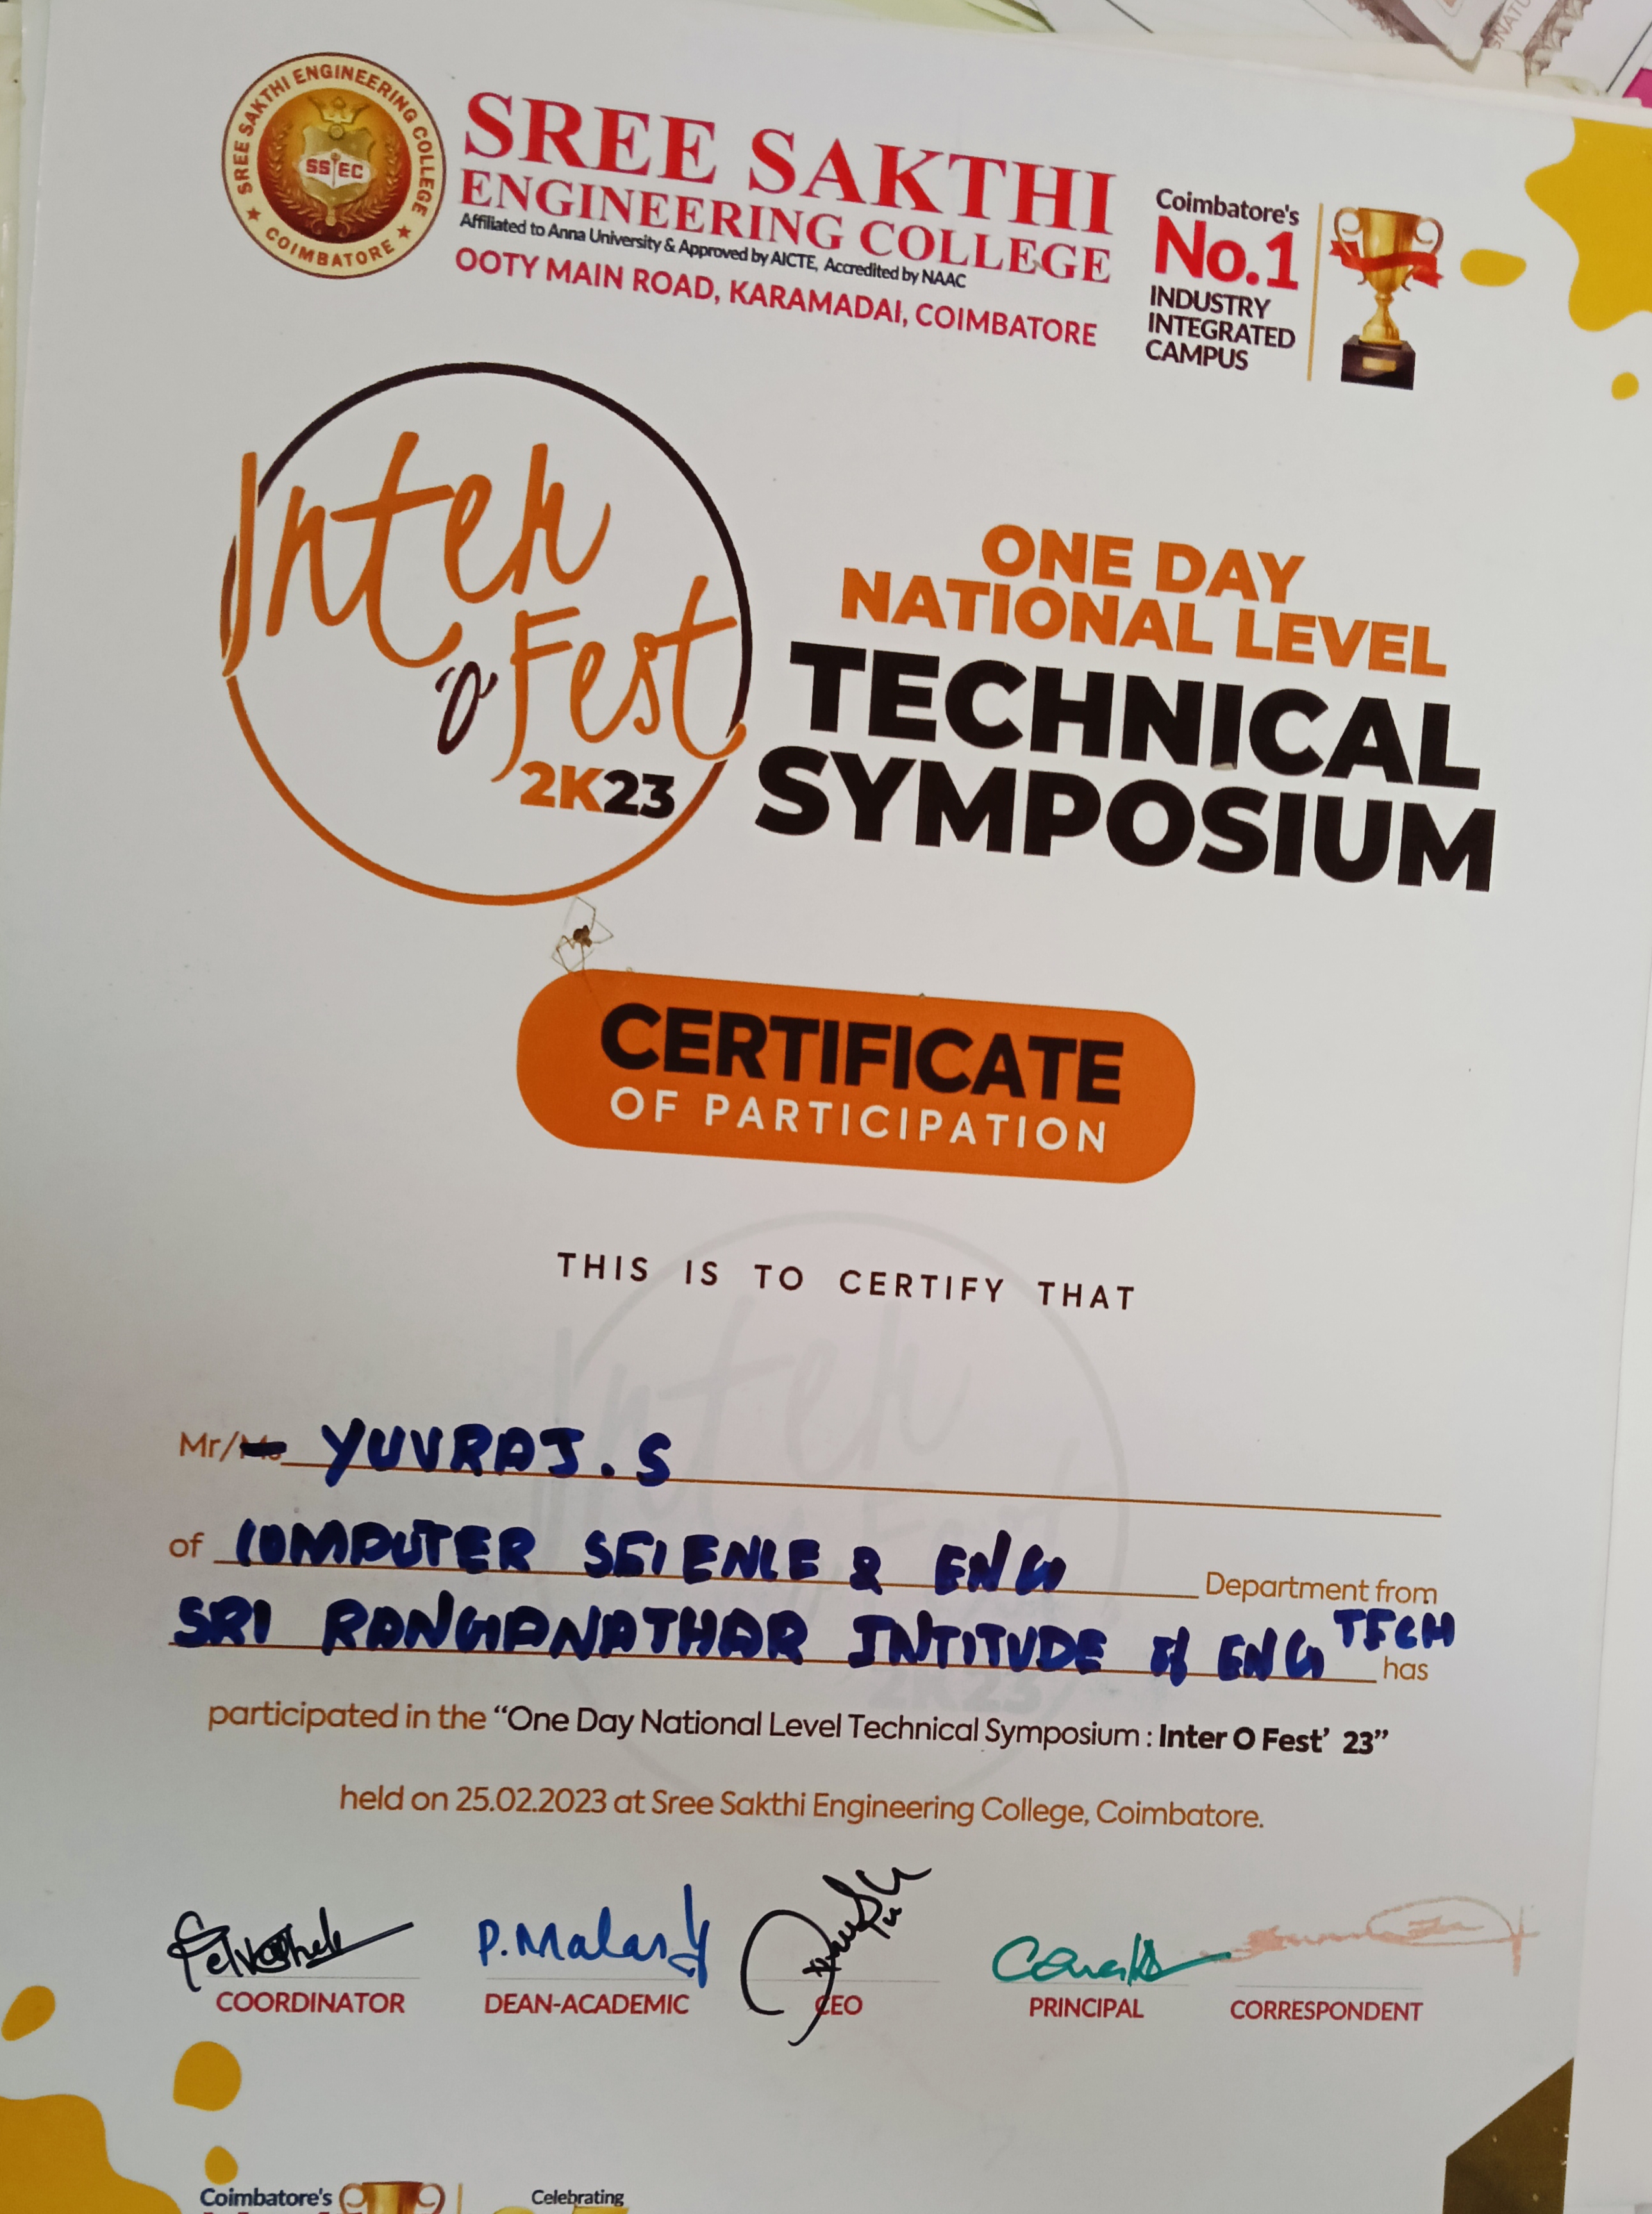 SREE SAKTHI ENGINEERING COLLEGE
★ COIMBATORE ★
SSEC
SREE SAKTHI
ENGINEERING COLLEGE
Affiliated to Anna University & Approved by AICTE, Accredited by NAAC
OOTY MAIN ROAD, KARAMADAI, COIMBATORE
Coimbatore's
No.1
INDUSTRY
INTEGRATED
CAMPUS
Inter
'O' Fest
2K23
ONE DAY
NATIONAL LEVEL
TECHNICAL
SYMPOSIUM
CERTIFICATE
OF PARTICIPATION
THIS IS TO CERTIFY THAT
Mr/Ms YUVRAJ.S
of COMPUTER SCIENCE & ENG Department from
SRI RANGANATHAR INTITUDE of ENG TECH has
participated in the “One Day National Level Technical Symposium : Inter O Fest’ 23”
held on 25.02.2023 at Sree Sakthi Engineering College, Coimbatore.
P.Mala
COORDINATOR DEAN-ACADEMIC CEO PRINCIPAL CORRESPONDENT
Coimbatore's
Celebrating